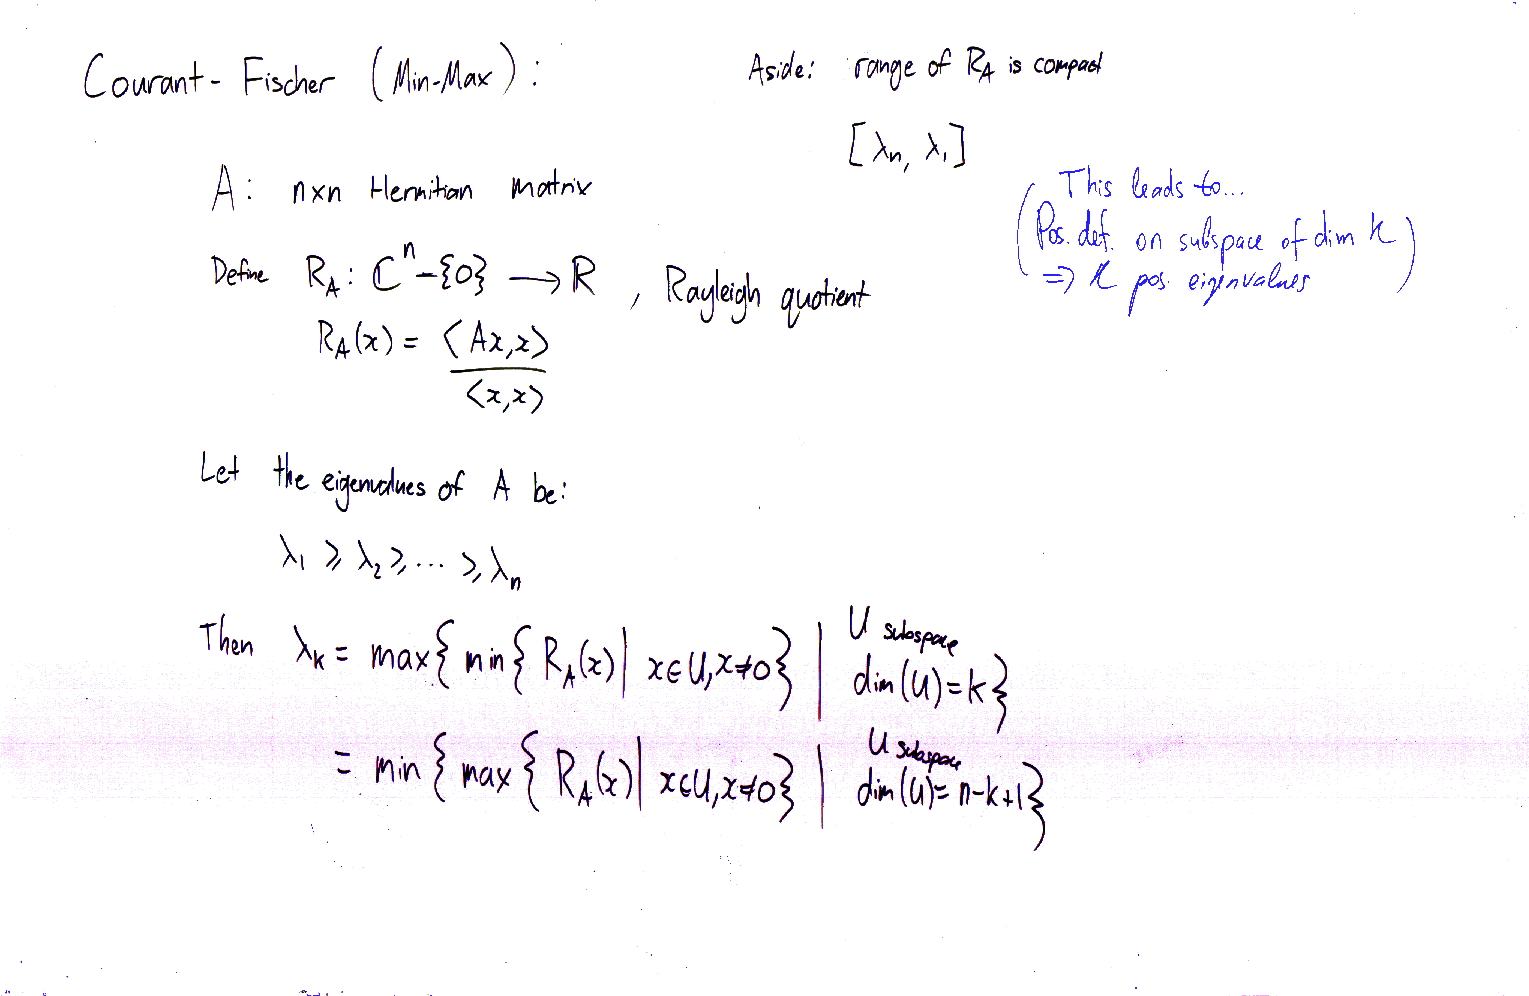 Courant-Fischer (Min-Max):
Aside: range of R_A is compact
[λ_n, λ_1]
(This leads to...
Pos. def. on subspace of dim k
=> k pos. eigenvalues)
A: n×n Hermitian matrix
Define R_A: ℂ^n-{0} → ℝ, Rayleigh quotient
R_A(x) = <Ax,x>
<x,x>
Let the eigenvalues of A be:
λ_1 ⩾ λ_2 ⩾ ... ⩾ λ_n
Then λ_k = max{ min{ R_A(x) | x∈U, x≠0} | U subspace
dim(U)=k}
= min{ max{ R_A(x) | x∈U, x≠0} | U subspace
dim(U)= n-k+1}